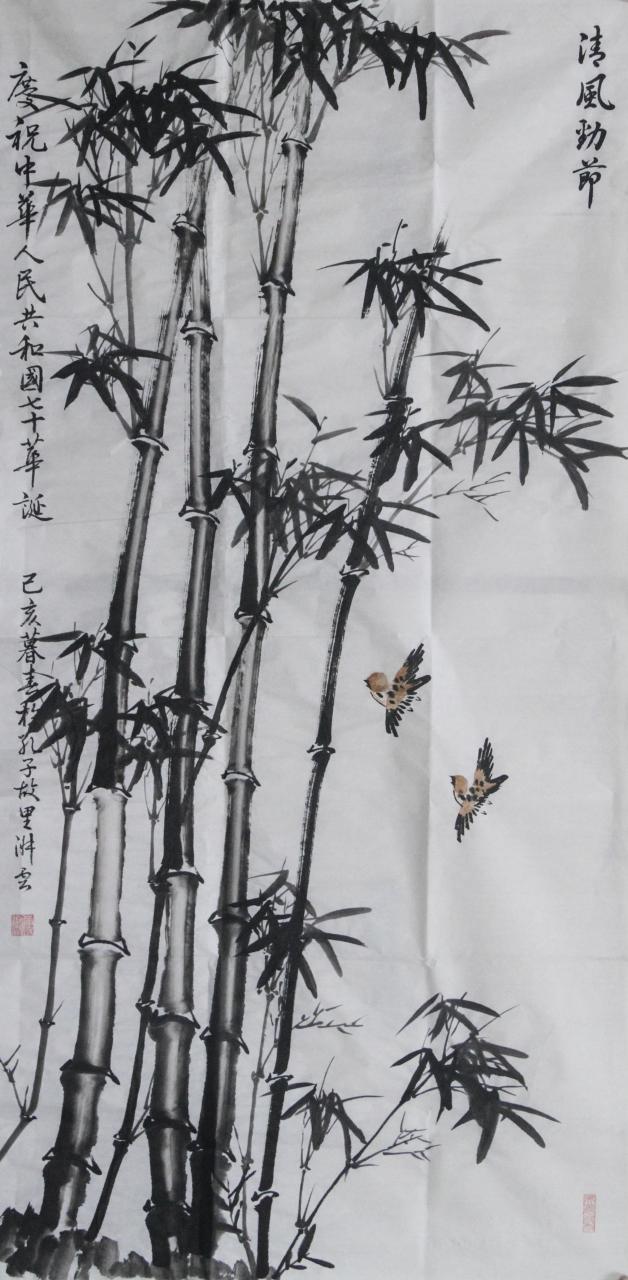 清風勁節
慶祝中華人民共和國七十華誕
己亥暮春於孔子故里洲雲